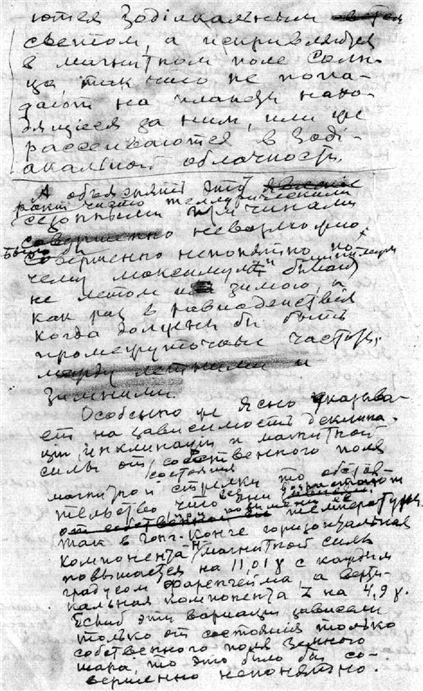 ются зодіакальным
светом, а искривляются
в магнитном поле Солн-
ца так что не попа-
дают на планеты нахо-
дящіеся за ним, или же
рассеиваются в зоді-
акальной облачности.
А объяснять эту
чисто термическими
сезонными причинами
невозможно.
Было бы
совершенно непонятно по-
чему максимум бывают
не летом и зимою, а
как раз в равноденствія
когда должны бы быть
промежуточные частоты,
между летними и
зимними.
Особенно же ясно указыва-
ет на зависимость деклина-
ции инклинации и магнитной
силы от собственного поля
состояния
магнитной стрелки то обстоя-
тельство что они
температуры.
Так в гонг-конге горизонтальная
компонента H магнитной силы
повышается на 11,01 γ с каждым
градусом Фаренгейта, а верти-
кальная компонента Z на 4,9 γ.
Если б эти вариации зависели
только от состояния только
собственного поля земного
шара, то это было бы со-
вершенно непонятно.